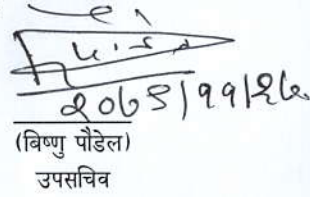 २०७९|११|१७
(बिष्णु पौडेल)
उपसचिव